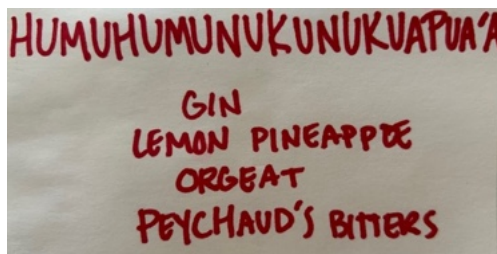 HUMUHUMUNUKUNUKUAPUA'A
GIN
LEMON PINEAPPLE
ORGEAT
PEYCHAUD'S BITTERS